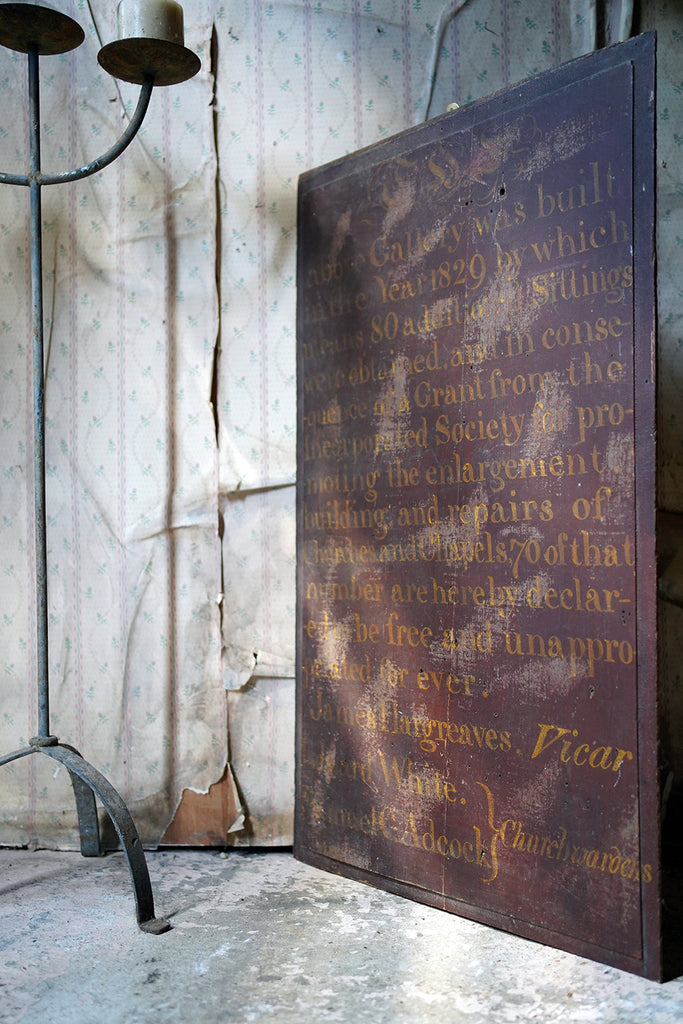 THE
above Gallery was built
in the Year 1829, by which
means 80 additional Sittings
were obtained, and in conse-
-quence of a Grant from the
Incorporated Society for pro-
moting the enlargement
building, and repairs of
Churches and Chapels 70 of that
number are hereby declar-
-ed to be free and unappro-
-priated for ever.
James Hargreaves. Vicar
White.
C. Adcock
Churchwardens